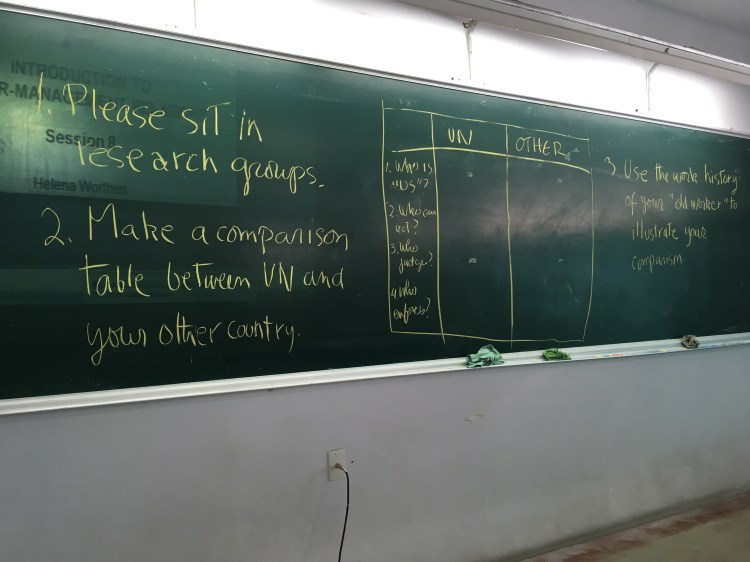 INTRODUCTION TO
R-MANAGE
Session 8
Helena Worthen
1. Please sit in
research groups.
2. Make a comparison
table between VN and
your other country.
VN OTHER
1. Who is
"US"?
2. Who can
act?
3. Who
judge?
4. Who
enforces?
3. Use the work history
of your "old worker" to
illustrate your
comparison